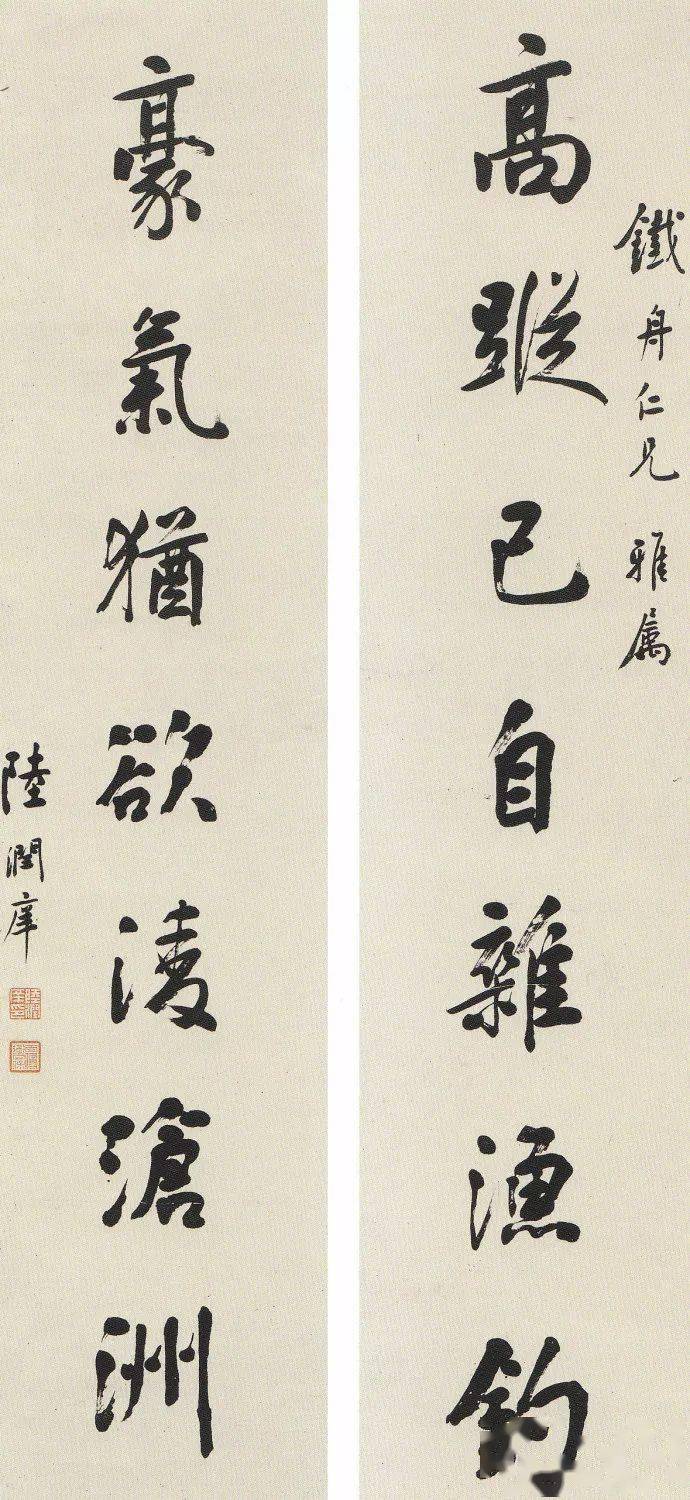 鐵舟仁兄雅属
高蹤已自雜漁釣
豪氣猶欲淩滄洲
陸潤庠